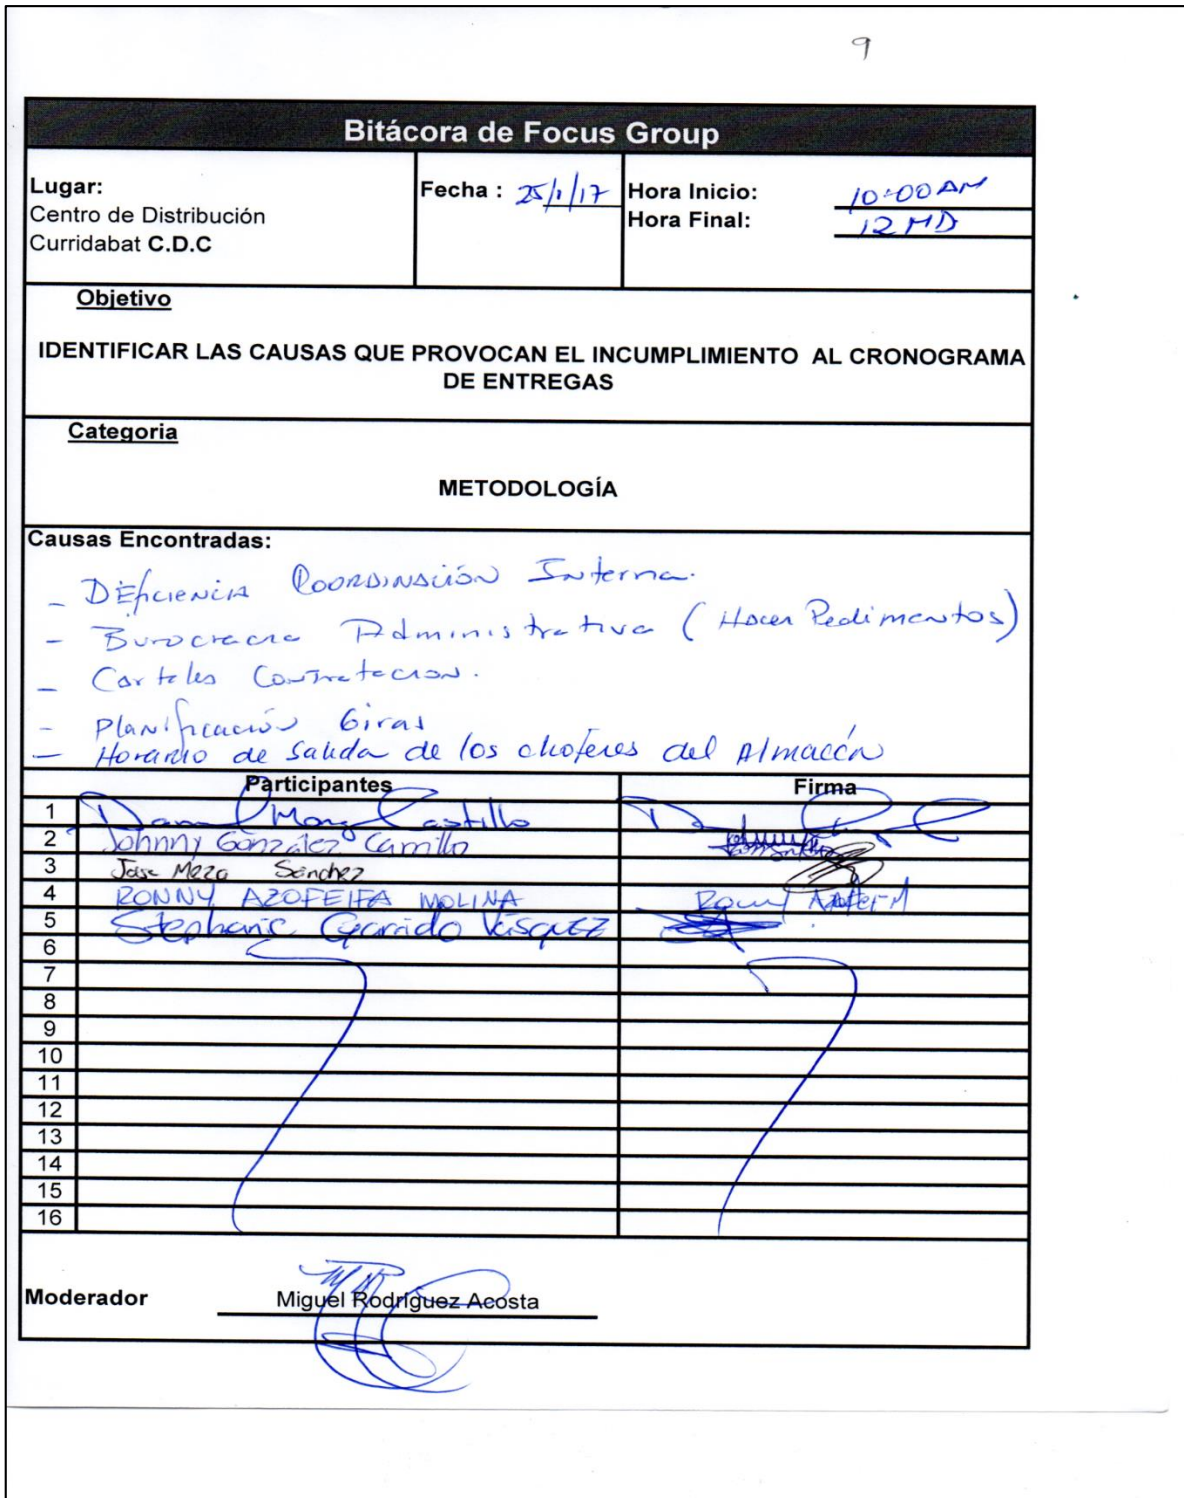 9
Bitácora de Focus Group
Lugar:
Centro de Distribución
Curridabat C.D.C
Fecha : 25/1/17
Hora Inicio: 10:00 AM
Hora Final: 12 MD
Objetivo
IDENTIFICAR LAS CAUSAS QUE PROVOCAN EL INCUMPLIMIENTO AL CRONOGRAMA
DE ENTREGAS
Categoria
METODOLOGÍA
Causas Encontradas:
- DEficiENCiA COORDiNACiÓN Interna.
- Burocracia Administrativa (Hacer Pedimentos)
- Carteles Contratacion.
- Planificación Giras
- Horario de Salida de los choferes del Almacén
Participantes Firma
1 Castillo
2 Johnny González Carrillo
3 Jose Meza Sánchez
4 RONNY AZOFEIFA MOLINA Ronny
5 Stephanie Garrido Vásquez
6
7
8
9
10
11
12
13
14
15
16
Moderador Miguel Rodríguez Acosta